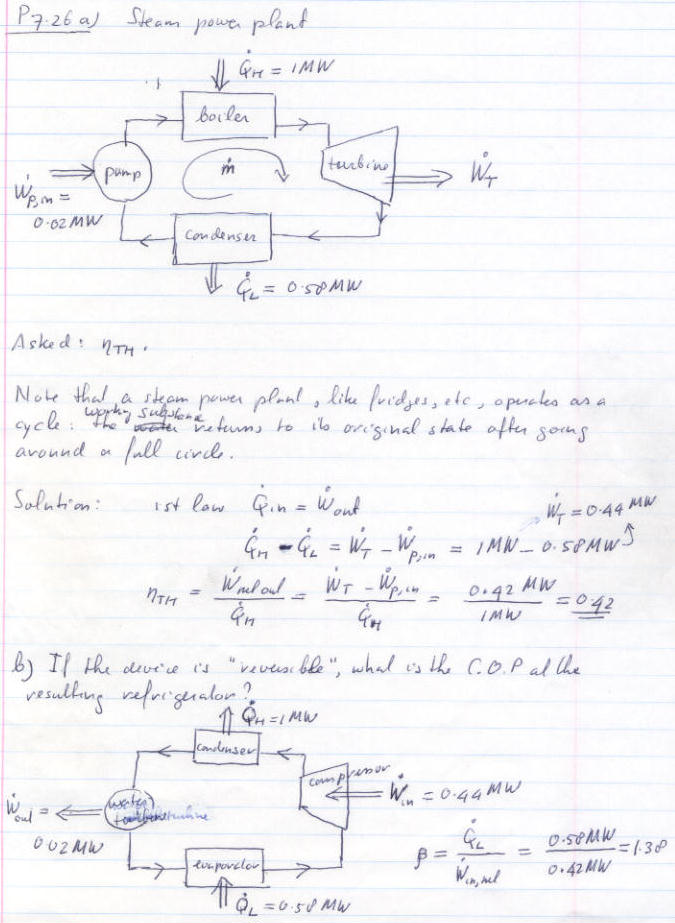 P7.26 a) Steam power plant
Q̇H = 1MW
boiler
pump
ṁ
turbine
ẆT
Ẇp,in =
0.02 MW
condenser
Q̇L = 0.58 MW
Asked: ηTH.
Note that a steam power plant, like fridges, etc, operates as a
working substance
cycle: the water returns to its original state after going
around a full circle.
Solution: 1st law Q̇in = Ẇout
ẆT = 0.44 MW
Q̇H - Q̇L = ẆT - Ẇp,in = 1MW - 0.58MW
ηTH = Ẇnet out / Q̇H = ẆT - Ẇp,in / Q̇H = 0.42 MW / 1MW = 0.42
b) If the device is "reversible", what is the C.O.P of the
resulting refrigerator?
Q̇H = 1MW
condenser
compressor
Ẇin = 0.44 MW
Ẇout =
0.02 MW
water
turbine
evaporator
Q̇L = 0.58 MW
β = Q̇L / Ẇin,net = 0.58MW / 0.42MW = 1.38